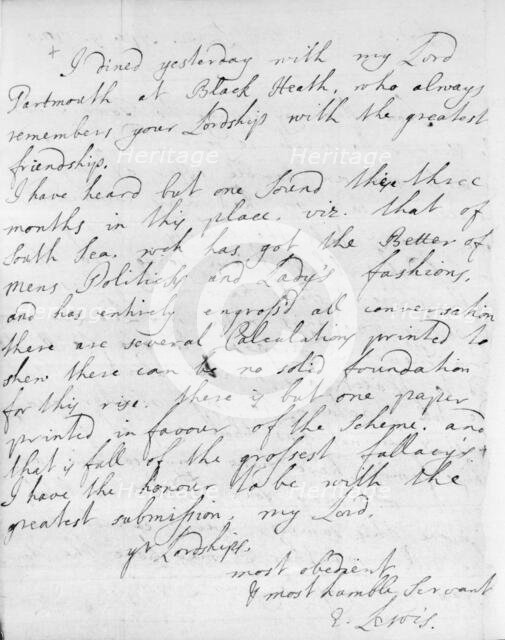 I dined yesterday with my Lord
Dartmouth at Black Heath, who always
remembers your Lordship with the greatest
friendship.
I have heard but one Sound these three
months in this place. viz. that of
South Sea. wch has got the Better of
mens Politicks and Lady's fashions,
and has entirely engross'd all conversation
there are several Calculations printed to
shew there can be no solid foundation
for this rise. there is but one paper
printed in favour of the Scheme. and
that is full of the grossest fallacys.
I have the honour to be with the
greatest submission, my Lord.
yr Lordships.
most obedient
& most humble Servant
E. Lewis.
Heritage
Heritage
Heritage
Heritage
Heritage
Heritage